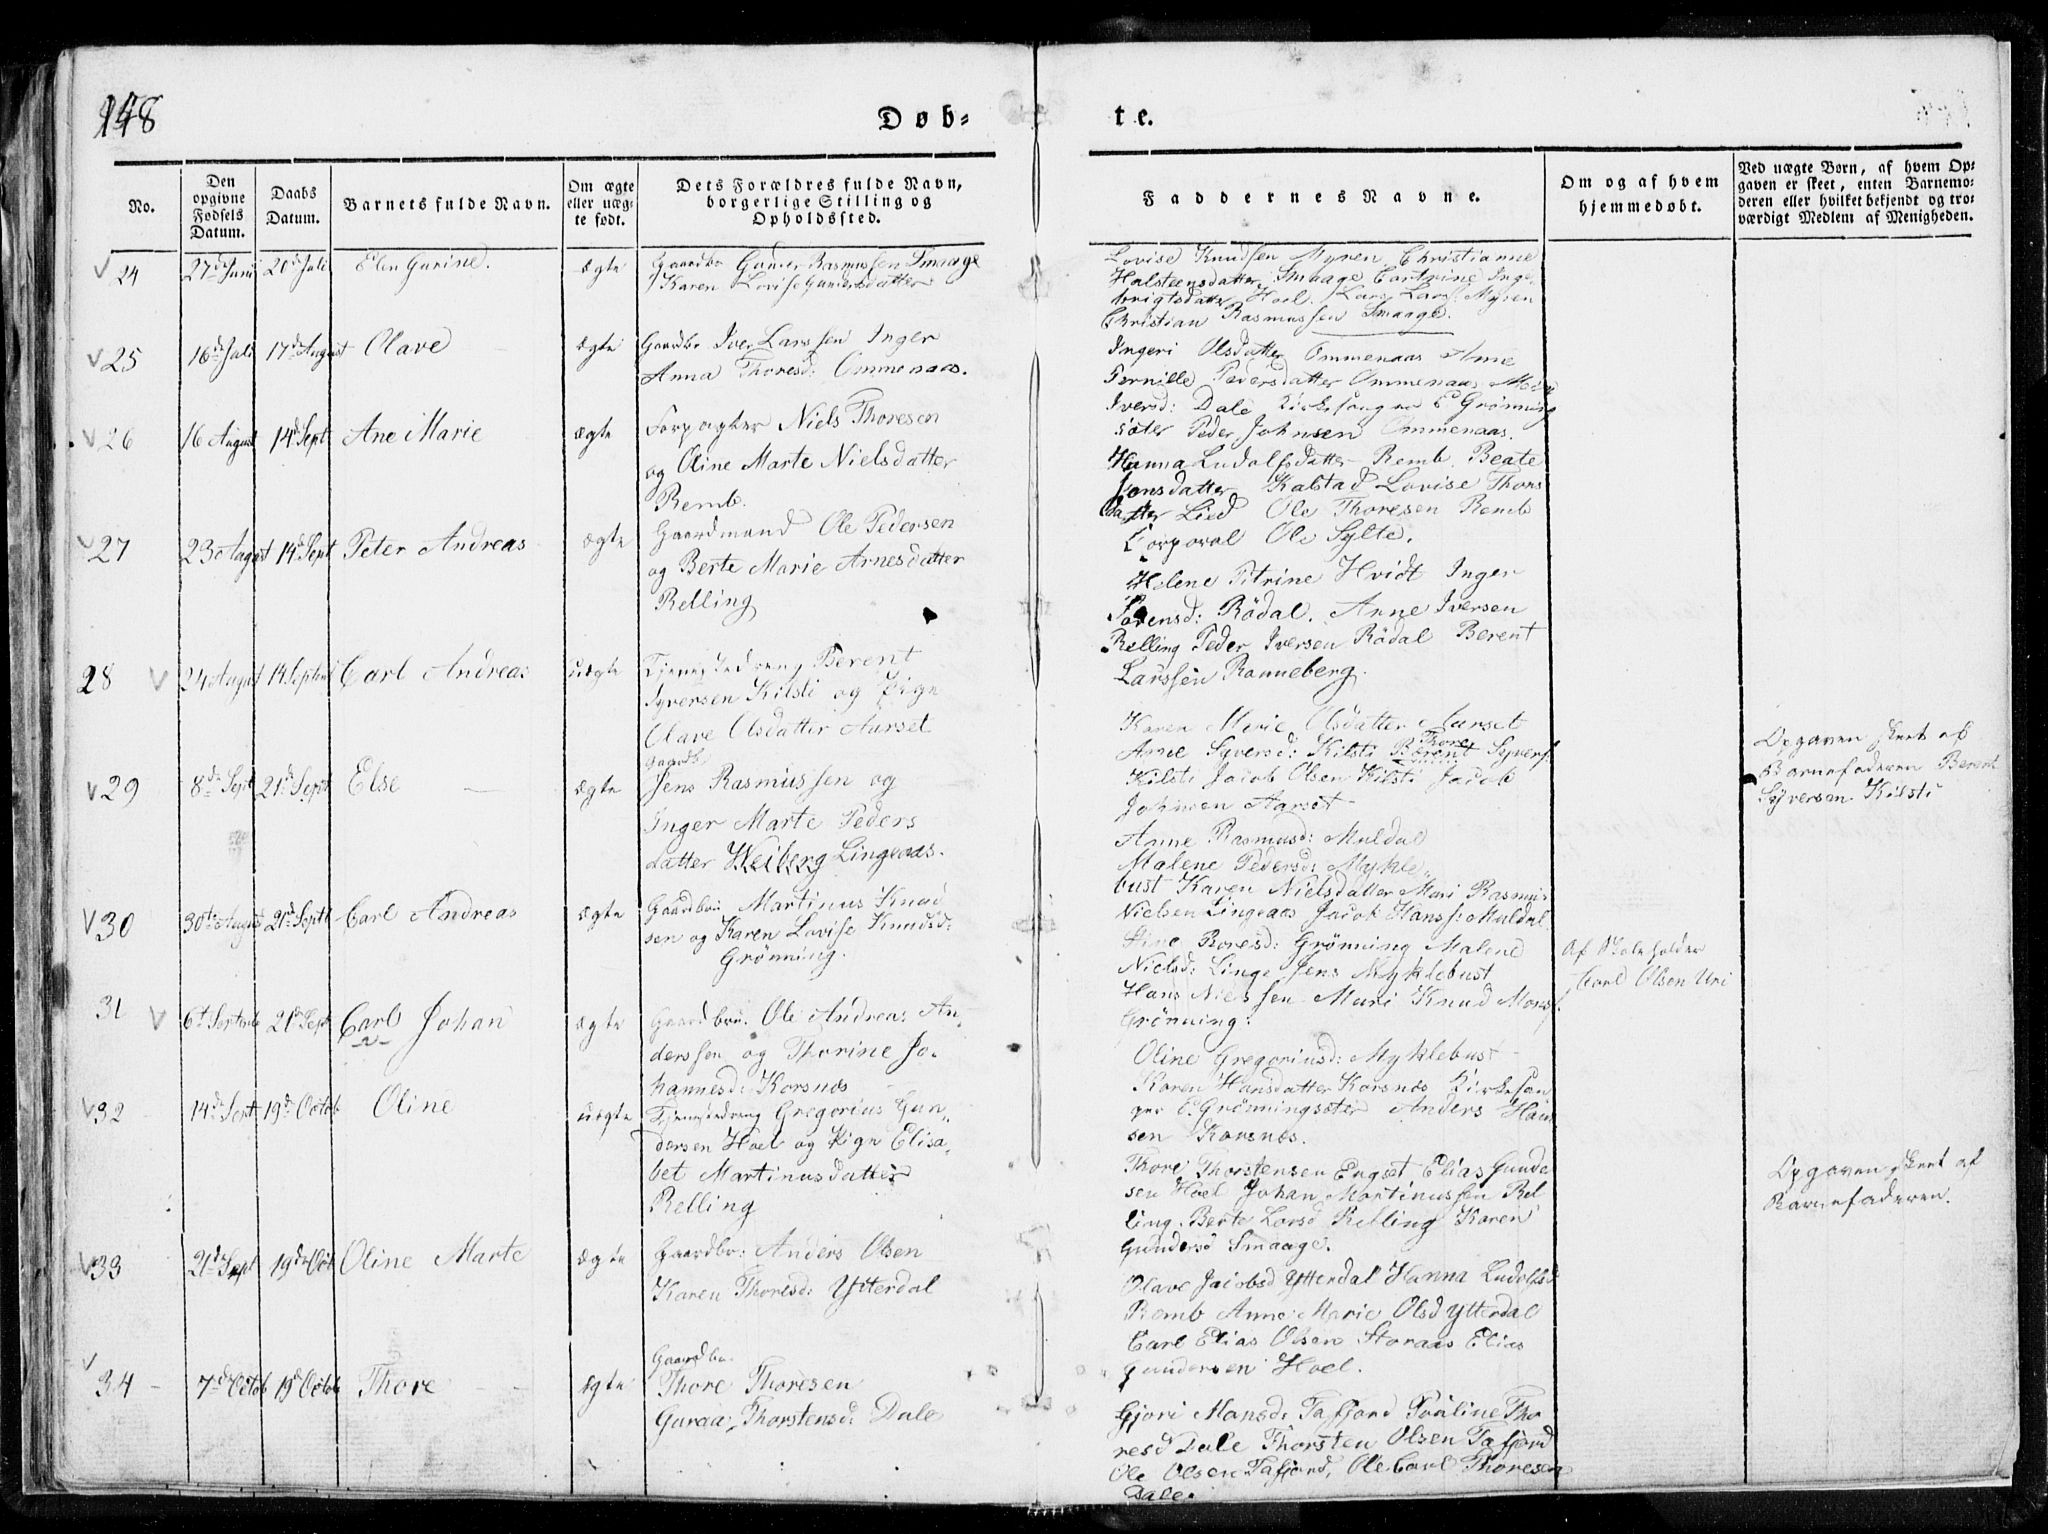 148
Døb-
te.
No.
Den
opgivne
Fødsels
Datum.
Daabs
Datum.
Barnets fulde Navn.
Om ægte
eller uæg-
te født.
Dets Forældres fulde Navn,
borgerlige Stilling og
Opholdssted.
Faddernes Navne.
Om og af hvem
hjemmedøbt.
Ved uægte Børn, af hvem Op-
gaven er skeet, enten Barnemo-
deren eller hvilket bekjendt og tro-
værdigt Medlem af Menigheden.
24
27de Juni
20d Juli
Elen Gurine.
ægte
Gaardbr Gunner Rasmussen Smaage
Karen Lovise Gunnersdatter
Lovise Knudsen Myren Christianne
Halsteensdatter Smaage Cartrine Inge-
brigtsdatter Hoel. Lars Lars: Myren
Christian Rasmussen Smaage.
25
16de Juli
17de August
Olave
ægte
Gaardbr Iver Larssen Inger
Anna Thoresd: Ommenaas.
Ingeri Olsdatter Ommenaas Anne
Pernille Pedersdatter Ommenaas
Iversd: Dale Kirkesanger E Grönning
sæter Peder Johnsen Ommenaas.
26
16 August
14d Sept
Ane Marie
ægte
Forpagter Niels Thoresen
og Oline Marte Nielsdatter
Remb.
Hanna Ludolfsdatter Remb. Beate
Jonsdatter Kalstad Lovise Thors
datter Lied Ole Thoresen Remb
Corporal Ole Sylte.
27
23 August
14d Sept
Peter Andreas
ægte
Gaardmand Ole Pedersen
og Berte Marie Arnesdatter
Relling
Helene Pitrine Hvidt Inger
Rödal. Anne Iversen
Relling Peder Iversen Rödal Berent
Larssen Ranneberg.
28
24 August
14 Septemb
Carl Andreas
uægte
Tjenestedreng Berent
Syversen Kilsti og Pige
Olave Olsdatter Aarset
Karen Marie Olsdatter Aarset
Anne Syversd: Kilsti Berent Syvers:
Thore
Kilsti Jacob Olsen Kilsti Jacob
Johnsen Aarset
Opgaven skeet af
Barnefaderen Berent
Syversen Kilsti
29
8de Sept
21de Sept
Else
ægte
Gaardb.
Jens Rasmussen og
Inger Marte Peders
datter Weiberg Lingeaas.
Anne Rasmusd: Muldal
Malene Pedersd: Mykle-
bust Karen Nielsdatter Mari Rasmus
Nielsen Lingeaas Jacob Hanss: Muldal
30
30te August
21d Septb
Carl Andreas
ægte
Gaardbr: Martinus Knud
sen og Karen Lovise Knudsd:
Grönning.
Stine Roresd: Grönning Malene
Nielsd: Linge Jens Myklebust
Hans Nielssen Muri Knud Mons:
Grönning:
Af Skoleholder
Carl Olsen Uri
31
6t Septemb
21de Sept
Carl Johan
ægte
Gaardbru. Ole Andreas An-
derssen og Thorine Jo-
hannesd: Korsnæs
Oline Gregoriusd: Myklebust
Karen Hansdatter Korsnæs Kirkesan
ger E. Grönningsæter Anders Han
sen Korsnæs.
32
14d Sept
19d Octob
Oline
uægte
Tjenestedreng Gregorius Gun-
dersen Hoel og Pige Elisa-
bet Martinusdatter
Relling
Thore Thorstensen Engset Elias Gunde
sen Hoel Johan Martinussen Rel
ling. Berte Larsd Relling Karen
Gundersd Smaage.
Opgaven skeet af
Barnefaderen.
33
21de Sept
19d Oct
Oline Marte
ægte
Gaardbr: Anders Olsen
Karen Thoresd: Ytterdal
Olave Jacobsd Ytterdal Hanna Ludolfsd
Remb Anne Marie Olsd Ytterdal
Carl Elias Olsen Storaas Elias
Gundersen Hoel.
34
7de Octob
19d Octob
Thore
ægte
Gaardbr.
Thore Thoresen
Guraa Thorstensd: Dale
Gjöri Monsd: Tafjord Pauline Tho
resd Dale Thorsten Olsen Tafjord
Ole Olsen Tafjord, Ole Carl Thoresen
Dale.